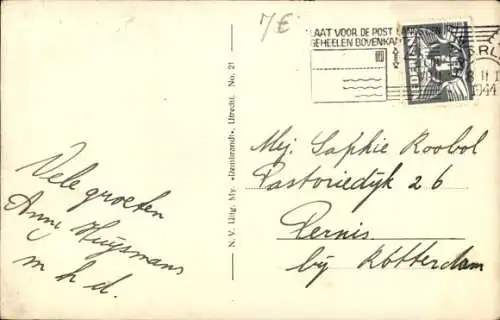 7€
LAAT VOOR DE POST
GEHEELEN BOVENKAN
NEDERLAND
1944
Vele groeten
Anny Huijsmans
m h d.
N. V. Uitg. My. «Rembrandt», Utrecht. No. 21
Mej. Saphie Roobol
Pastoriedijk 26
Pernis
bij Rotterdam